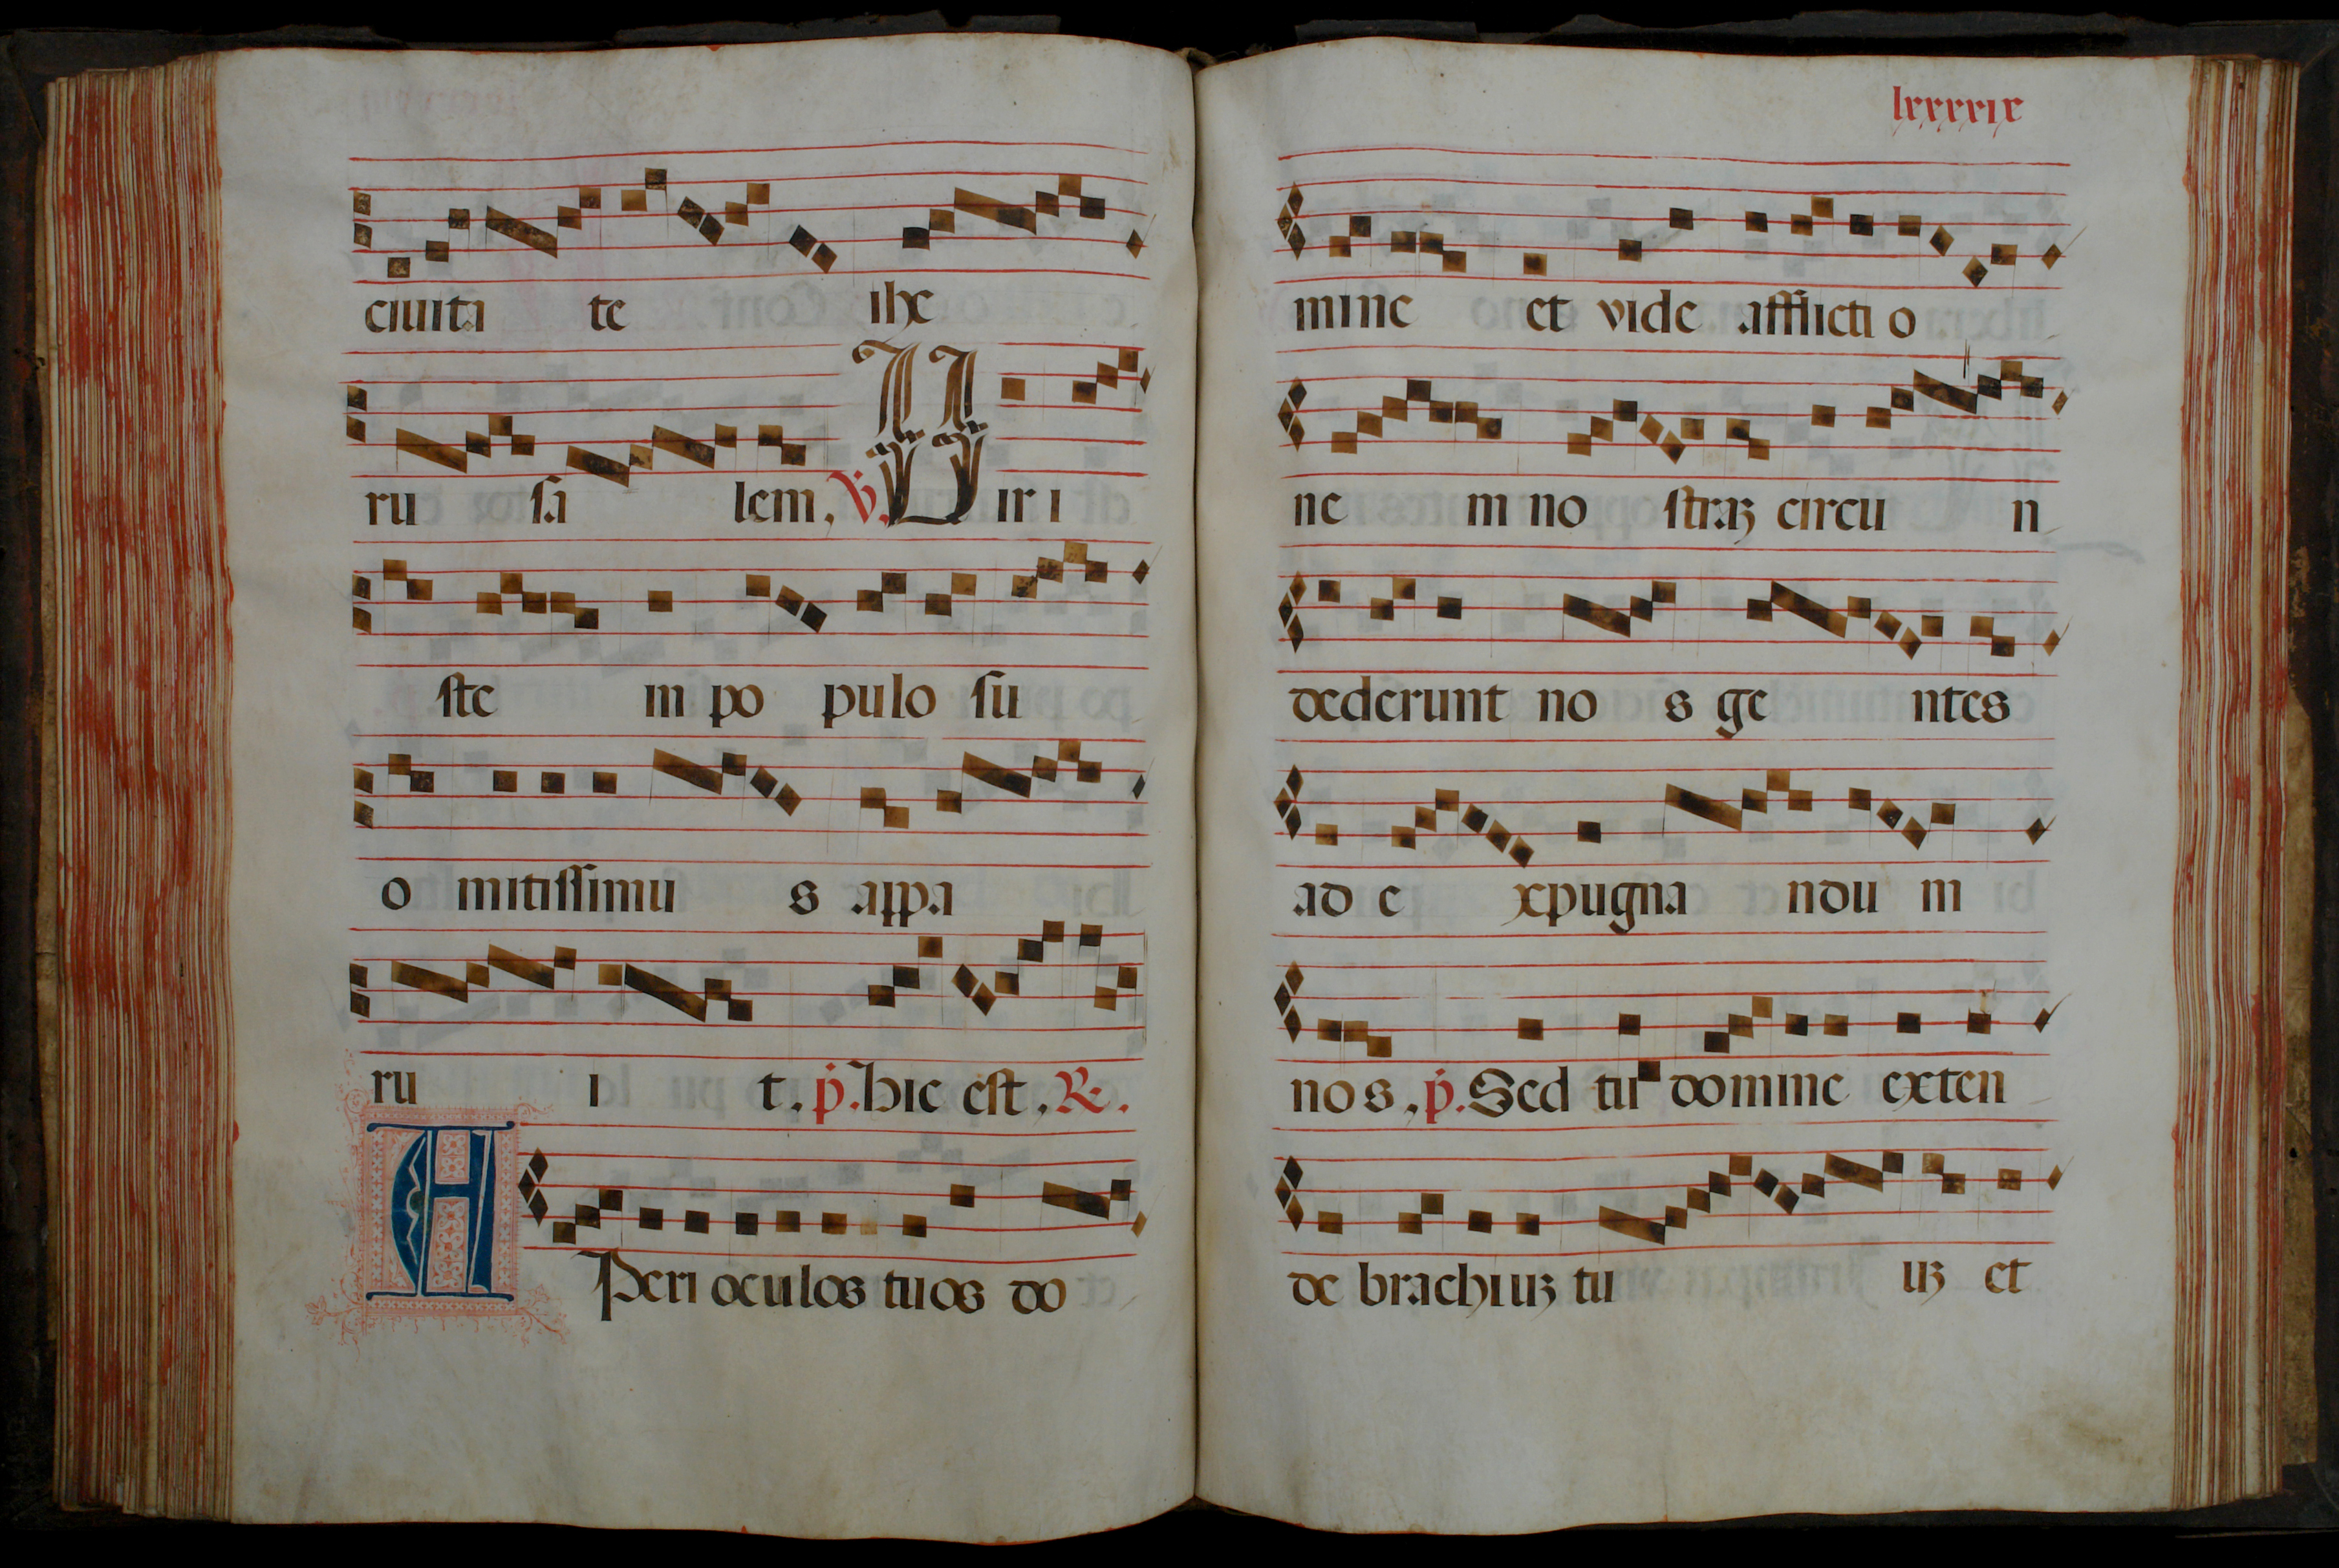 ciuita te ihe
ru sa lem, ℣. Uir i
ste in po pulo su
o mitissimu s appa
ru i t. p̄. Hic est, ℟.
APeri oculos tuos do
lxxxxix
mine et vide afflicti o
ne m no straꝫ circu n
dederunt no s ge ntes
ad e xpugna ndu m
no s, p̄. Sed tu domine exten
de brachiuꝫ tu uꝫ et